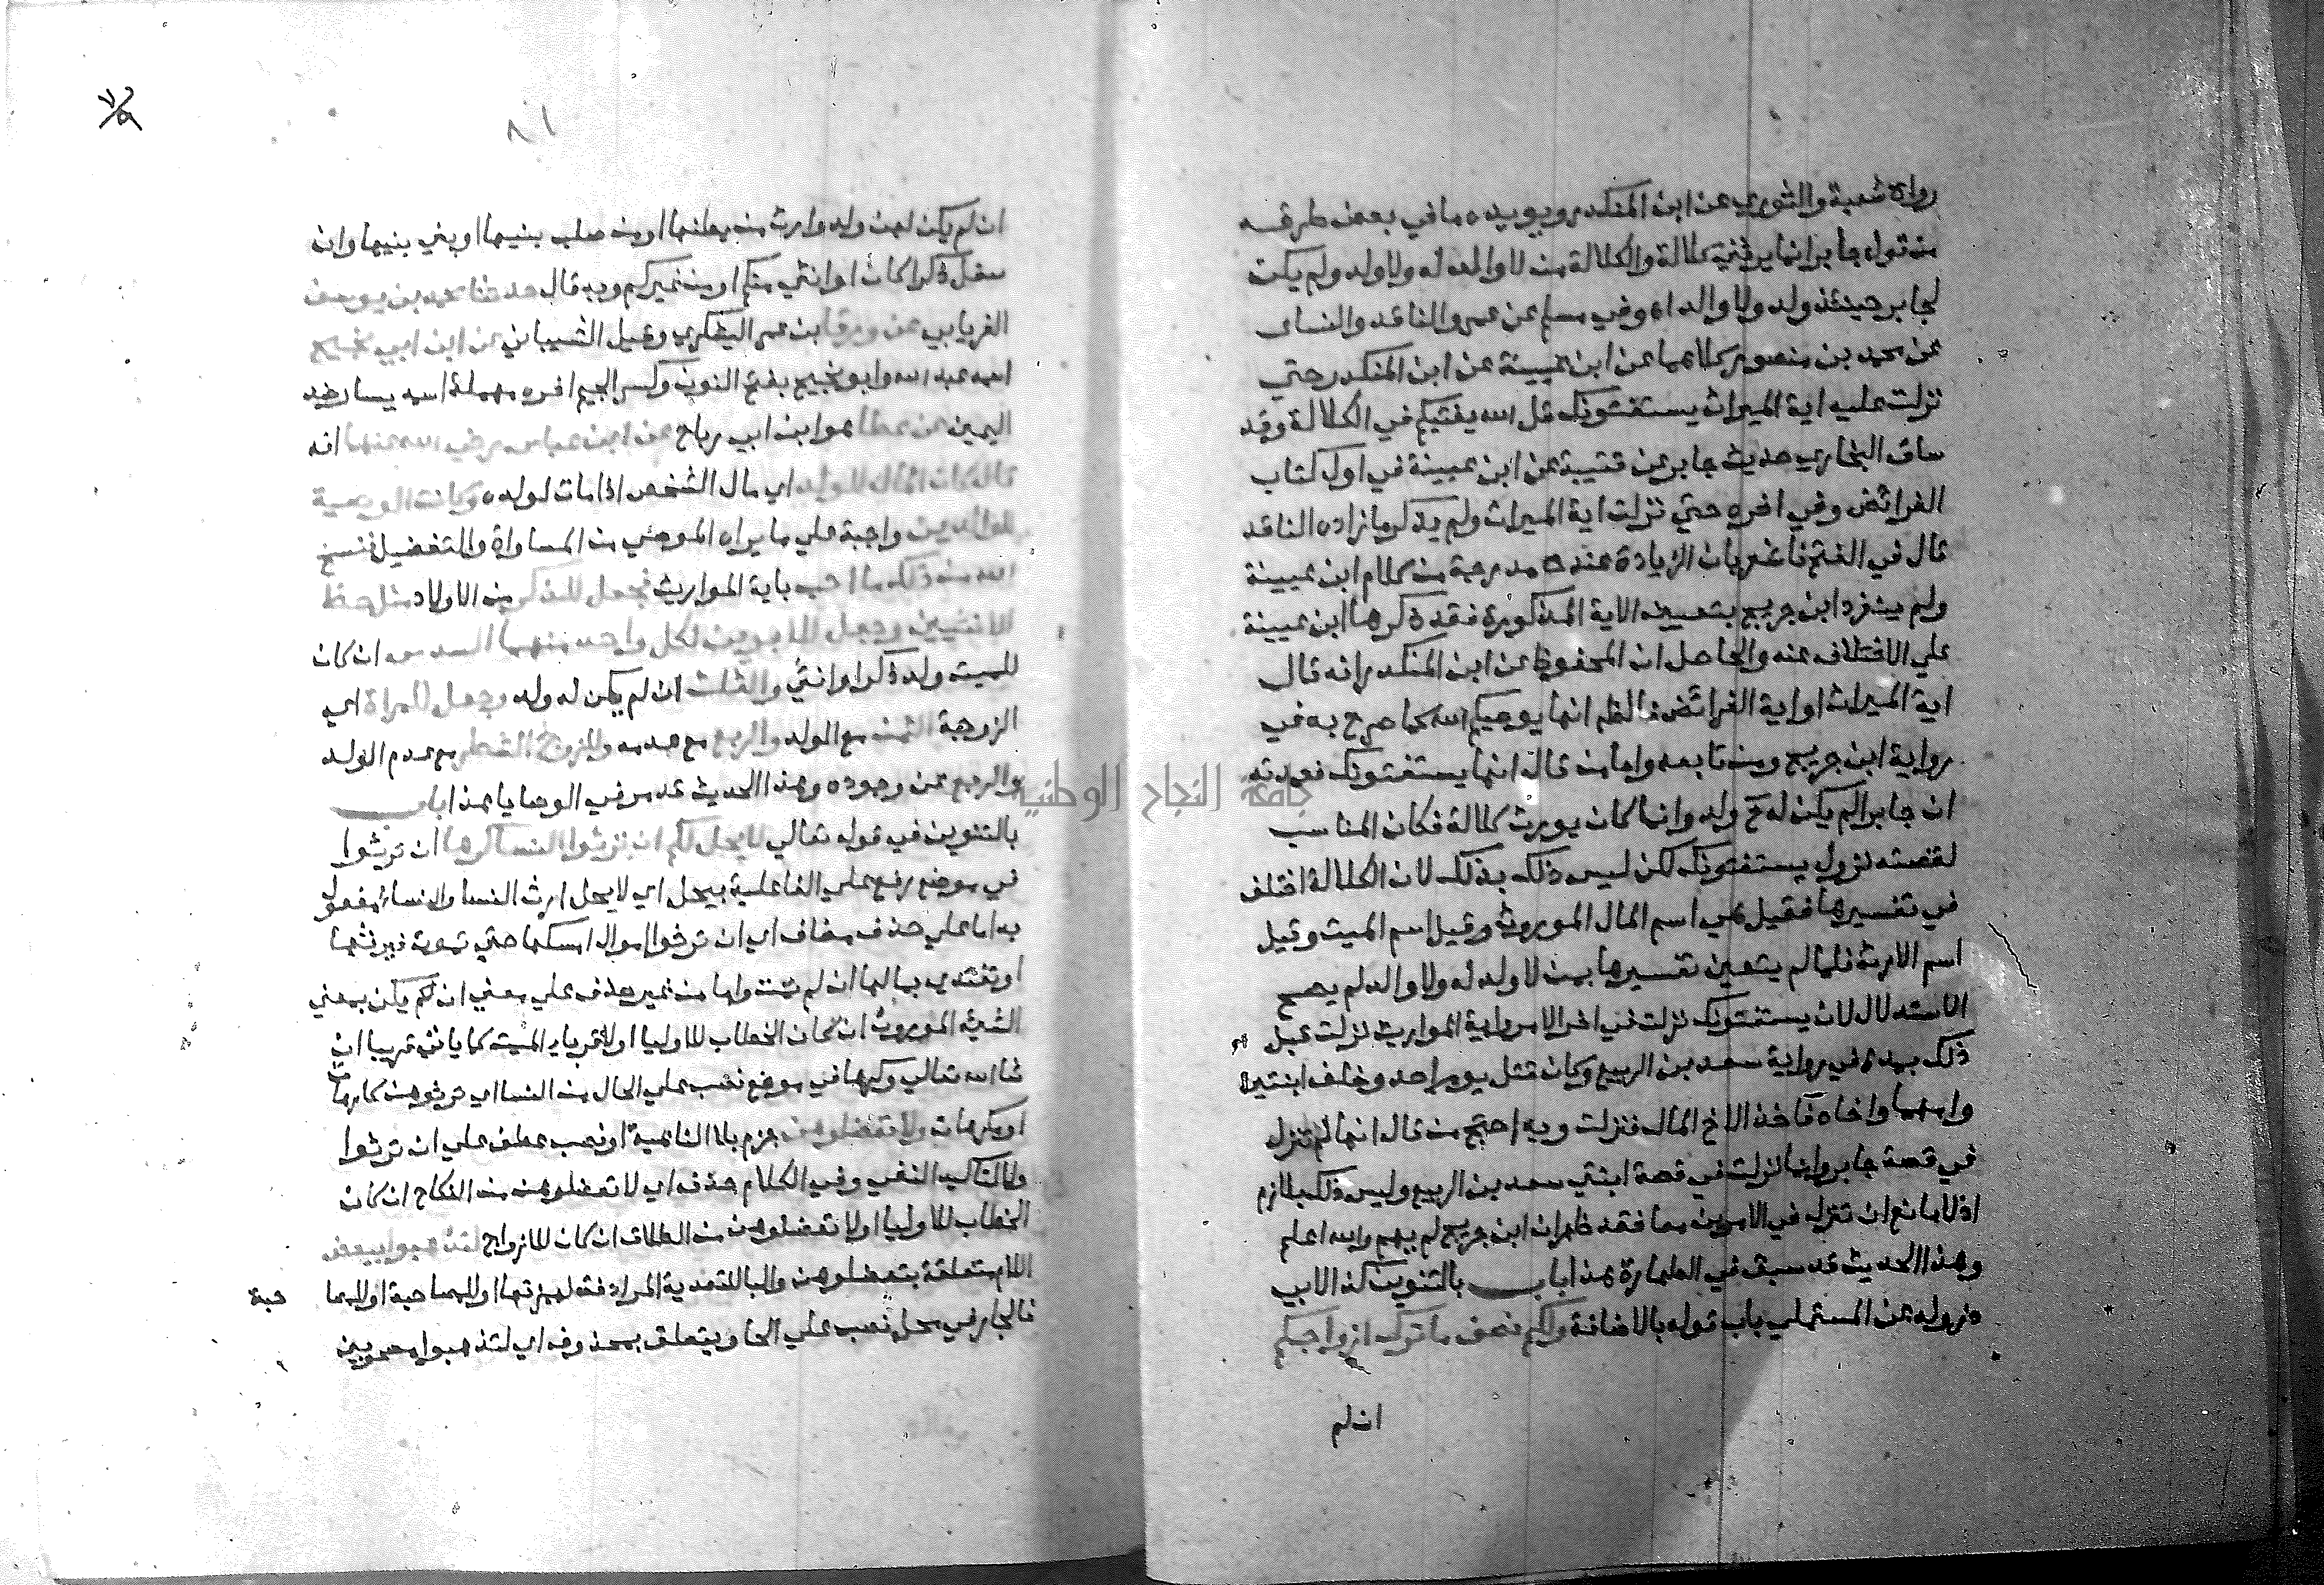 رواة شعبة والثوري عن ابن المنكدر ويويده ما في بعض طرقه
من قول جابر انما يرثني كلالة والكلالة من لا والد له ولا ولد ولم يكن
لجابر حينئذ ولد ولا والد اه وفي مسلم عن عمرو الناقد والنساى
عن محمد بن منصور كلاهما عن ابن عيينة عن ابن المنكدر حتي
نزلت عليه اية الميراث يستفتونك قل الله يفتيكم في الكلالة وقد
ساق البخاري حديث جابر عن قتيبة عن ابن عيينة في اول كتاب
الفرائض وفي اخره حتي نزلت اية الميراث ولم يذكر ما زاده الناقد
قال في الفتح فاشعر بان الزيادة عنده مدرجة من كلام ابن عيينة
ولم ينفرد ابن جريج بتعيين الاية المذكورة فقد ذكرها ابن عيينة
علي الاختلاف عنه والحاصل ان المحفوظ عن ابن المنكدر انه قال
اية الميراث او اية الفرائض فالظم انها يوصيكم الله كما صرح به في
رواية ابن جريج ومن تابعه واما من قال انها يستفتونك فعمدته
ان جابرا لم يكن له ح ولد وانما كان يورث كلالة فكان المناسب
لقصته نزول يستفتونك لكن ليس ذلك بذلك لان الكلالة اختلف
في تفسيرها فقيل هي اسم المال الموروث وقيل اسم الميت وقيل
اسم الارث فلما لم يتعين تفسيرها بمن لا ولد له ولا والد لم يصح
الاستدلال لان يستفتونك نزلت في اخر الامر واية المواريث نزلت قبل
ذلك بمدة في رواية سعد بن الربيع وكان قتل يوم احد وخلف ابنتين
وامهما واخاه فاخذ الاخ المال فنزلت وبه احتج من قال انها لم تنزل
في قصة جابر وانما نزلت في قصة ابنتي سعد بن الربيع وليس ذلك بلازم
اذ لا مانع ان تنزل في الامرين معا فقد ظهر ان ابن جريج لم يهم والله اعلم
وهذا الحديث قد سبق في الطهارة هذا باب بالتنوين كذا لابي
ذر وله عن المستملي باب قوله بالاضافة ولكم نصف ما ترك ازواجكم
ان لم
٨١
ان لم يكن لهن ولد وارث من بطنها او من صلب بنيها او بني بنيها وان
سفل ذكرا كان او انثي منكم او من غيركم وبه قال حدثنا محمد بن يوسف
الفريابي عن ورقا ابن عمر اليشكري وقيل الشيباني عن ابن ابي نجيح
اسمه عبد الله وابو نجيح بفتح النون وكسر الجيم اخره مهملة اسمه يسار ضد
اليمين عن عطا هو ابن ابي رباح عن ابن عباس رضي الله عنهما انه
قال كان المال للولد اي مال الشخص اذا مات لولده وكانت الوصية
للوالدين واجبة علي ما يراه الموصي من المساواة والتفضيل فنسخ
الله من ذلك ما احب باية المواريث فجعل للذكر من الاولاد مثل حظ
الانثيين وجعل للابوين لكل واحد منهما السدس ان كان
للميت ولد ذكرا او انثي والثلث ان لم يكن له ولد وجعل للمراة اي
الزوجة الثمن مع الولد والربع مع عدمه وللزوج الشطر مع عدم الولد
والربع عن وجوده وهذا الحديث قد مر في الوصايا هذا باب
بالتنوين في قوله تعالي لا يحل لكم ان ترثوا النسا كرها ان ترثوا
في موضع رفع علي الفاعلية بيحل اي لا يحل ارث النسا والنساء مفعول
به اما علي حذف مضاف اي ان ترثوا اموال امسكها حتي تموت فيرثها
او تفتدي بمالها ان لم تمت واما من غير حذف علي معني ان لم يكن بمعني
الشيء الموروث ان كان الخطاب للاوليا او لاقرباء الميت كما ياتي قريبا ان
شا الله تعالي وكرها في موضع نصب علي الحال من النسا اي ترثوهن كارهات
او مكرهات ولا تعضلوهن جزم بلا الناهية او نصب عطف علي ان ترثوا
ولا لتاكيد النفي وفي الكلام حذف اي لا تعضلوهن من النكاح ان كان
الخطاب للاوليا او لا تعضلوهن من الطلاق ان كان للازواج لتذهبوا ببعض
اللام متعلقة بتعضلوهن والبا للتعدية المرادفة لهمزتها او للمصاحبة او للمصا حبة
فالجار في محل نصب علي الحا ويتعلق بمحذوف اي لتذهبوا مصحوبين
جامعة النجاح الوطنية